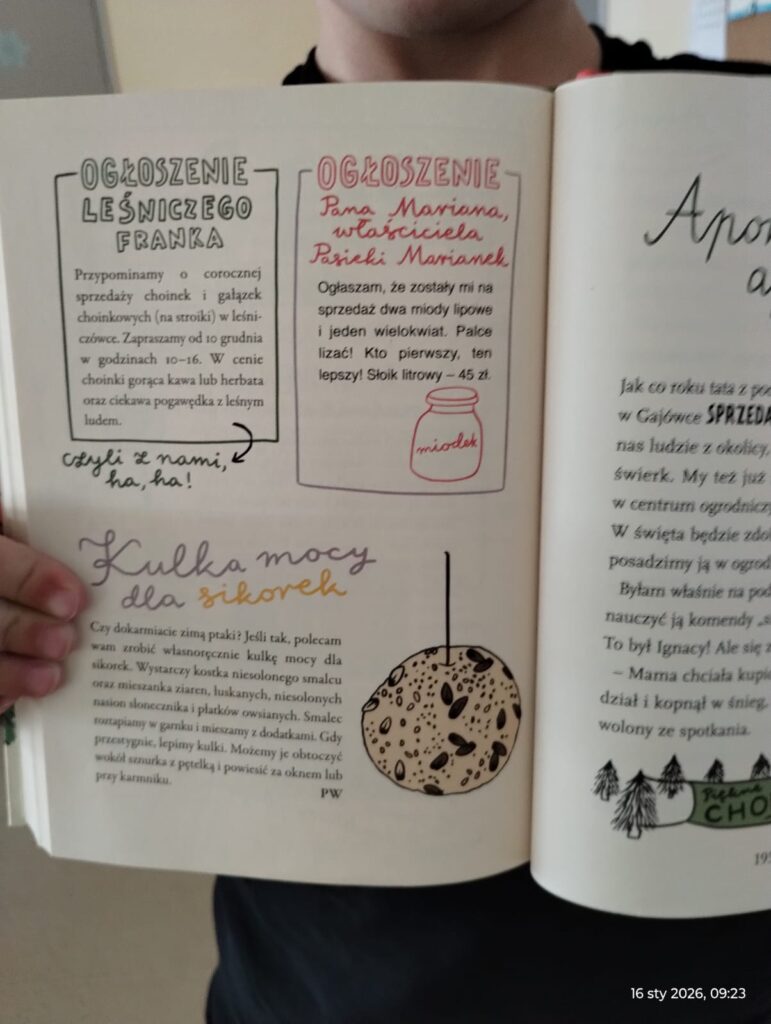 OGŁOSZENIE
LEŚNICZEGO
FRANKA
Przypominamy o corocznej
sprzedaży choinek i gałązek
choinkowych (na stroiki) w leśni-
czówce. Zapraszamy od 10 grudnia
w godzinach 10–16. W cenie
choinki gorąca kawa lub herbata
oraz ciekawa pogawędka z leśnym
ludem.
czyli z nami,
ha, ha!
OGŁOSZENIE
Pana Mariana,
właściciela
Pasieki Marianek
Ogłaszam, że zostały mi na
sprzedaż dwa miody lipowe
i jeden wielokwiat. Palce
lizać! Kto pierwszy, ten
lepszy! Słoik litrowy – 45 zł.
miodek
Kulka mocy
dla sikorek
Czy dokarmiacie zimą ptaki? Jeśli tak, polecam
wam zrobić własnoręcznie kulkę mocy dla
sikorek. Wystarczy kostka niesolonego smalcu
oraz mieszanka ziaren, łuskanych, niesolonych
nasion słonecznika i płatków owsianych. Smalec
roztapiamy w garnku i mieszamy z dodatkami. Gdy
przestygnie, lepimy kulki. Możemy je obtoczyć
wokół sznurka z pętelką i powiesić za oknem lub
przy karmniku.
PW
Jak co roku tata z
w Gajówce
nas ludzie z okolicy,
świerk. My też już
w centrum ogrodniczy
W święta będzie
posadzimy ją w ogrod
Byłam właśnie na
nauczyć ją komendy
To był Ignacy! Ale się
– Mama chciała
dział i kopnął w śnieg.
wolony ze spotkania.
Piękne
CHO
16 sty 2026, 09:23